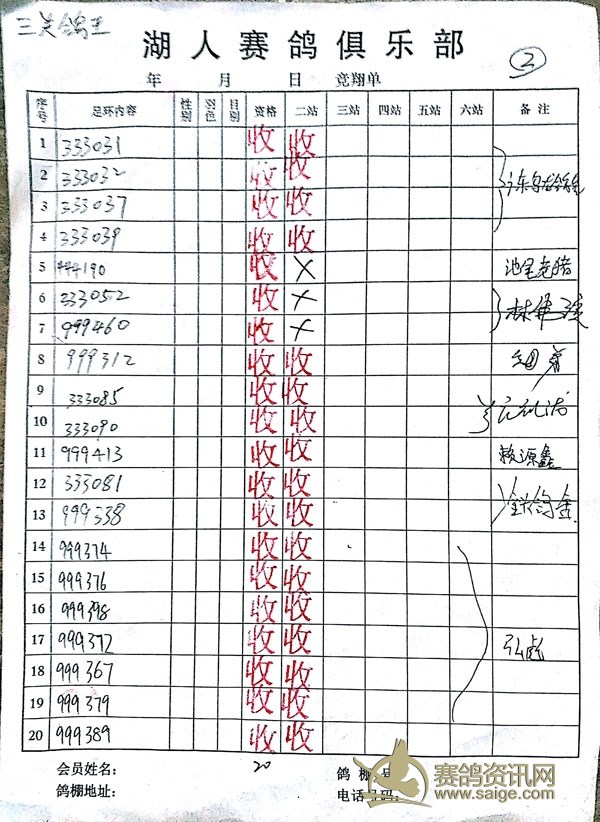 三关鸽王
湖人赛鸽俱乐部
年 月 日 竞翔单
2
序号 足环内容 性别 羽色 目别 资格 二站 三站 四站 五站 六站 备注
1 333031 收 收
2 333032 收 收
3 333037 收 收
4 333039 收 收
5 444190 收 ×
6 333052 收 ×
7 999460 收 ×
8 999312 收 收
9 333085 收 收
10 333090 收 收
11 999413 收 收 赖源鑫
12 333081 收 收
13 999338 收 收
14 999374 收 收
15 999376 收 收
16 999398 收 收
17 999372 收 收 弘彪
18 999367 收 收
19 999379 收 收
20 999389 收 收
会员姓名: 20 鸽棚号:
鸽棚地址: 电话号码:
赛鸽资讯网
www.saige.com